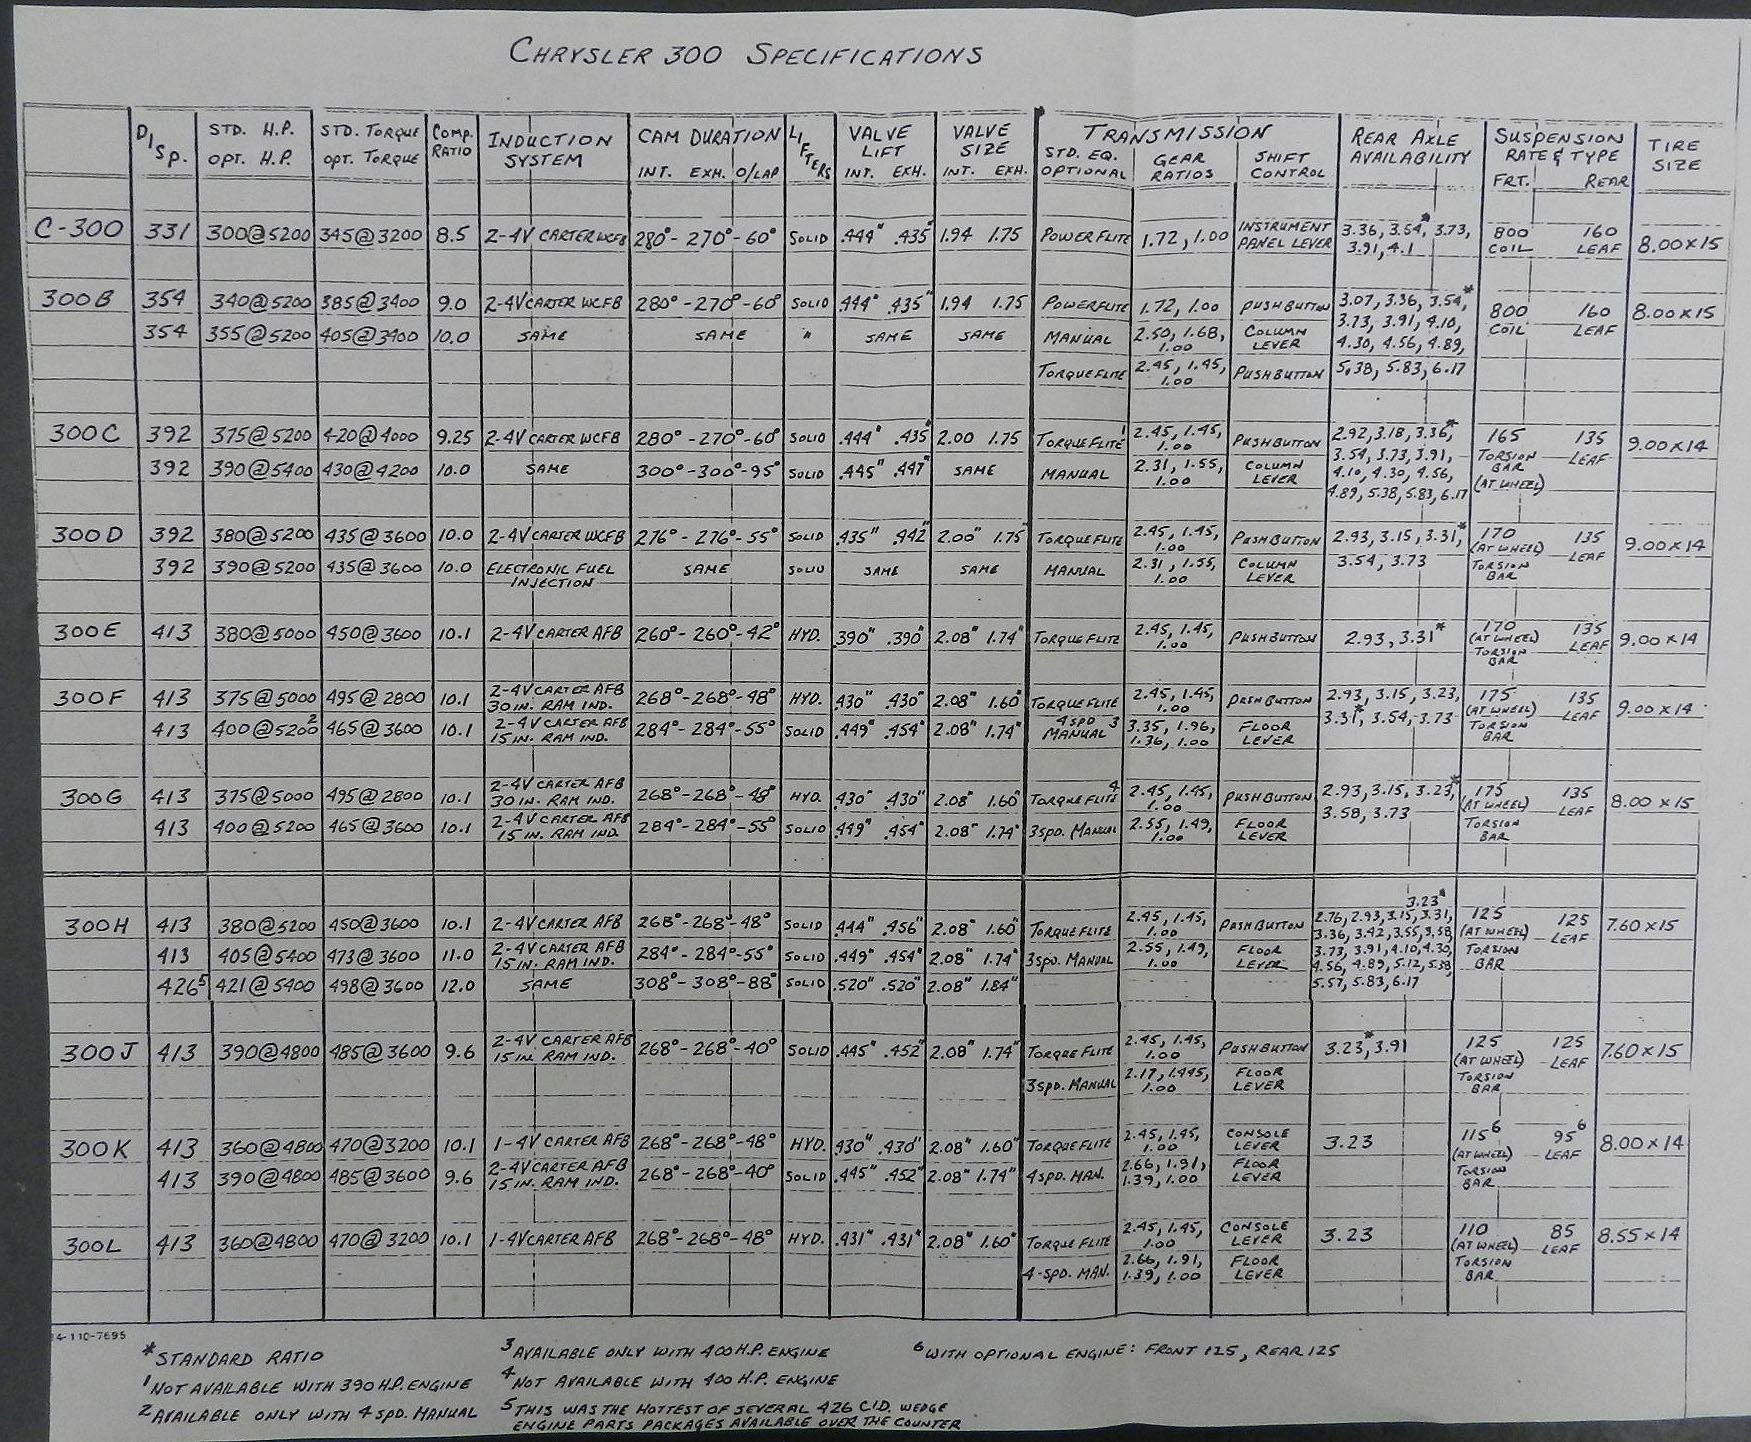 CHRYSLER 300 SPECIFICATIONS
DISP. STD. H.P. STD. TORQUE COMP. RATIO INDUCTION SYSTEM CAM DURATION LIFTERS VALVE LIFT VALVE SIZE TRANSMISSION REAR AXLE AVAILABILITY SUSPENSION RATE & TYPE TIRE SIZE
OPT. H.P. OPT. TORQUE INT. EXH. O/LAP INT. EXH. INT. EXH. STD. EQ. OPTIONAL GEAR RATIOS SHIFT CONTROL FRT. REAR
C-300 331 300@5200 345@3200 8.5 2-4V CARTER WCFB 280°-270°-60° SOLID .444" .435" 1.94 1.75 POWERFLITE 1.72, 1.00 INSTRUMENT PANEL LEVER 3.36, 3.54*, 3.73, 3.91, 4.1 800 COIL 160 LEAF 8.00×15
300B 354 340@5200 385@3400 9.0 2-4V CARTER WCFB 280°-270°-60° SOLID .444" .435" 1.94 1.75 POWERFLITE 1.72, 1.00 PUSHBUTTON 3.07, 3.36, 3.54,* 800 COIL 160 LEAF 8.00×15
354 355@5200 405@3400 10.0 SAME SAME " SAME SAME MANUAL 2.50, 1.68, 1.00 COLUMN LEVER 3.73, 3.91, 4.10, 4.30, 4.56, 4.89,
TORQUEFLITE 2.45, 1.45, 1.00 PUSHBUTTON 5.38, 5.83, 6.17
300C 392 375@5200 420@4000 9.25 2-4V CARTER WCFB 280°-270°-60° SOLID .444" .435" 2.00 1.75 TORQUEFLITE¹ 2.45, 1.45, 1.00 PUSHBUTTON 2.92, 3.18, 3.36,* 165 TORSION BAR (AT WHEEL) 135 LEAF 9.00×14
392 390@5400 430@4200 10.0 SAME 300°-300°-95° SOLID .445" .447" SAME MANUAL 2.31, 1.55, 1.00 COLUMN LEVER 3.54, 3.73, 3.91, 4.10, 4.30, 4.56, 4.89, 5.38, 5.83, 6.17
300D 392 380@5200 435@3600 10.0 2-4V CARTER WCFB 276°-276°-55° SOLID .435" .442" 2.00" 1.75" TORQUEFLITE 2.45, 1.45, 1.00 PUSHBUTTON 2.93, 3.15, 3.31,* 170 (AT WHEEL) TORSION BAR 135 LEAF 9.00×14
392 390@5200 435@3600 10.0 ELECTRONIC FUEL INJECTION SAME SOLID SAME SAME MANUAL 2.31, 1.55, 1.00 COLUMN LEVER 3.54, 3.73
300E 413 380@5000 450@3600 10.1 2-4V CARTER AFB 260°-260°-42° HYD. .390" .390" 2.08" 1.74" TORQUEFLITE 2.45, 1.45, 1.00 PUSHBUTTON 2.93, 3.31* 170 (AT WHEEL) TORSION BAR 135 LEAF 9.00×14
300F 413 375@5000 495@2800 10.1 2-4V CARTER AFB 30 IN. RAM IND. 268°-268°-48° HYD. .430" .430" 2.08" 1.60" TORQUEFLITE 2.45, 1.45, 1.00 PUSHBUTTON 2.93, 3.15, 3.23, 175 (AT WHEEL) TORSION BAR 135 LEAF 9.00×14
413 400@5200² 465@3600 10.1 2-4V CARTER AFB 15 IN. RAM IND. 284°-284°-55° SOLID .449" .454" 2.08" 1.74" 4 SPD MANUAL³ 3.35, 1.96, 1.36, 1.00 FLOOR LEVER 3.31*, 3.54, 3.73
300G 413 375@5000 495@2800 10.1 2-4V CARTER AFB 30 IN. RAM IND. 268°-268°-48° HYD. .430" .430" 2.08" 1.60" TORQUEFLITE⁴ 2.45, 1.45, 1.00 PUSHBUTTON 2.93, 3.15, 3.23,* 175 (AT WHEEL) TORSION BAR 135 LEAF 8.00×15
413 400@5200 465@3600 10.1 2-4V CARTER AFB 15 IN. RAM IND. 284°-284°-55° SOLID .449" .454" 2.08" 1.74" 3 SPD. MANUAL 2.55, 1.49, 1.00 FLOOR LEVER 3.58, 3.73
300H 413 380@5200 450@3600 10.1 2-4V CARTER AFB 268°-268°-48° SOLID .444" .456" 2.08" 1.60" TORQUEFLITE 2.45, 1.45, 1.00 PUSHBUTTON 3.23* 2.76, 2.93, 3.15, 3.31, 3.36, 3.42, 3.55, 3.58 125 (AT WHEEL) TORSION BAR 125 LEAF 7.60×15
413 405@5400 473@3600 11.0 2-4V CARTER AFB 15 IN. RAM IND. 284°-284°-55° SOLID .449" .454" 2.08" 1.74" 3 SPD. MANUAL 2.55, 1.49, 1.00 FLOOR LEVER 3.73, 3.91, 4.10, 4.30, 4.56, 4.89, 5.12, 5.38,
426⁵ 421@5400 498@3600 12.0 SAME 308°-308°-88° SOLID .520" .520" 2.08" 1.84" 5.57, 5.83, 6.17
300J 413 390@4800 485@3600 9.6 2-4V CARTER AFB 15 IN. RAM IND. 268°-268°-40° SOLID .445" .452" 2.08" 1.74" TORQUEFLITE 2.45, 1.45, 1.00 PUSHBUTTON 3.23*, 3.91 125 (AT WHEEL) TORSION BAR 125 LEAF 7.60×15
3 SPD. MANUAL 2.17, 1.445, 1.00 FLOOR LEVER
300K 413 360@4800 470@3200 10.1 1-4V CARTER AFB 268°-268°-48° HYD. .430" .430" 2.08" 1.60" TORQUEFLITE 2.45, 1.45, 1.00 CONSOLE LEVER 3.23 115⁶ (AT WHEEL) TORSION BAR 95⁶ LEAF 8.00×14
413 390@4800 485@3600 9.6 2-4V CARTER AFB 15 IN. RAM IND. 268°-268°-40° SOLID .445" .452" 2.08" 1.74" 4 SPD. MAN. 2.66, 1.91, 1.39, 1.00 FLOOR LEVER
300L 413 360@4800 470@3200 10.1 1-4V CARTER AFB 268°-268°-48° HYD. .431" .431" 2.08" 1.60" TORQUEFLITE 2.45, 1.45, 1.00 CONSOLE LEVER 3.23 110 (AT WHEEL) TORSION BAR 85 LEAF 8.55×14
4-SPD. MAN. 2.66, 1.91, 1.39, 1.00 FLOOR LEVER
14-110-7695
*STANDARD RATIO
¹NOT AVAILABLE WITH 390 H.P. ENGINE
²AVAILABLE ONLY WITH 4 SPD. MANUAL
³AVAILABLE ONLY WITH 400 H.P. ENGINE
⁴NOT AVAILABLE WITH 400 H.P. ENGINE
⁵THIS WAS THE HOTTEST OF SEVERAL 426 C.I.D. WEDGE
ENGINE PARTS PACKAGES AVAILABLE OVER THE COUNTER
⁶WITH OPTIONAL ENGINE: FRONT 125, REAR 125